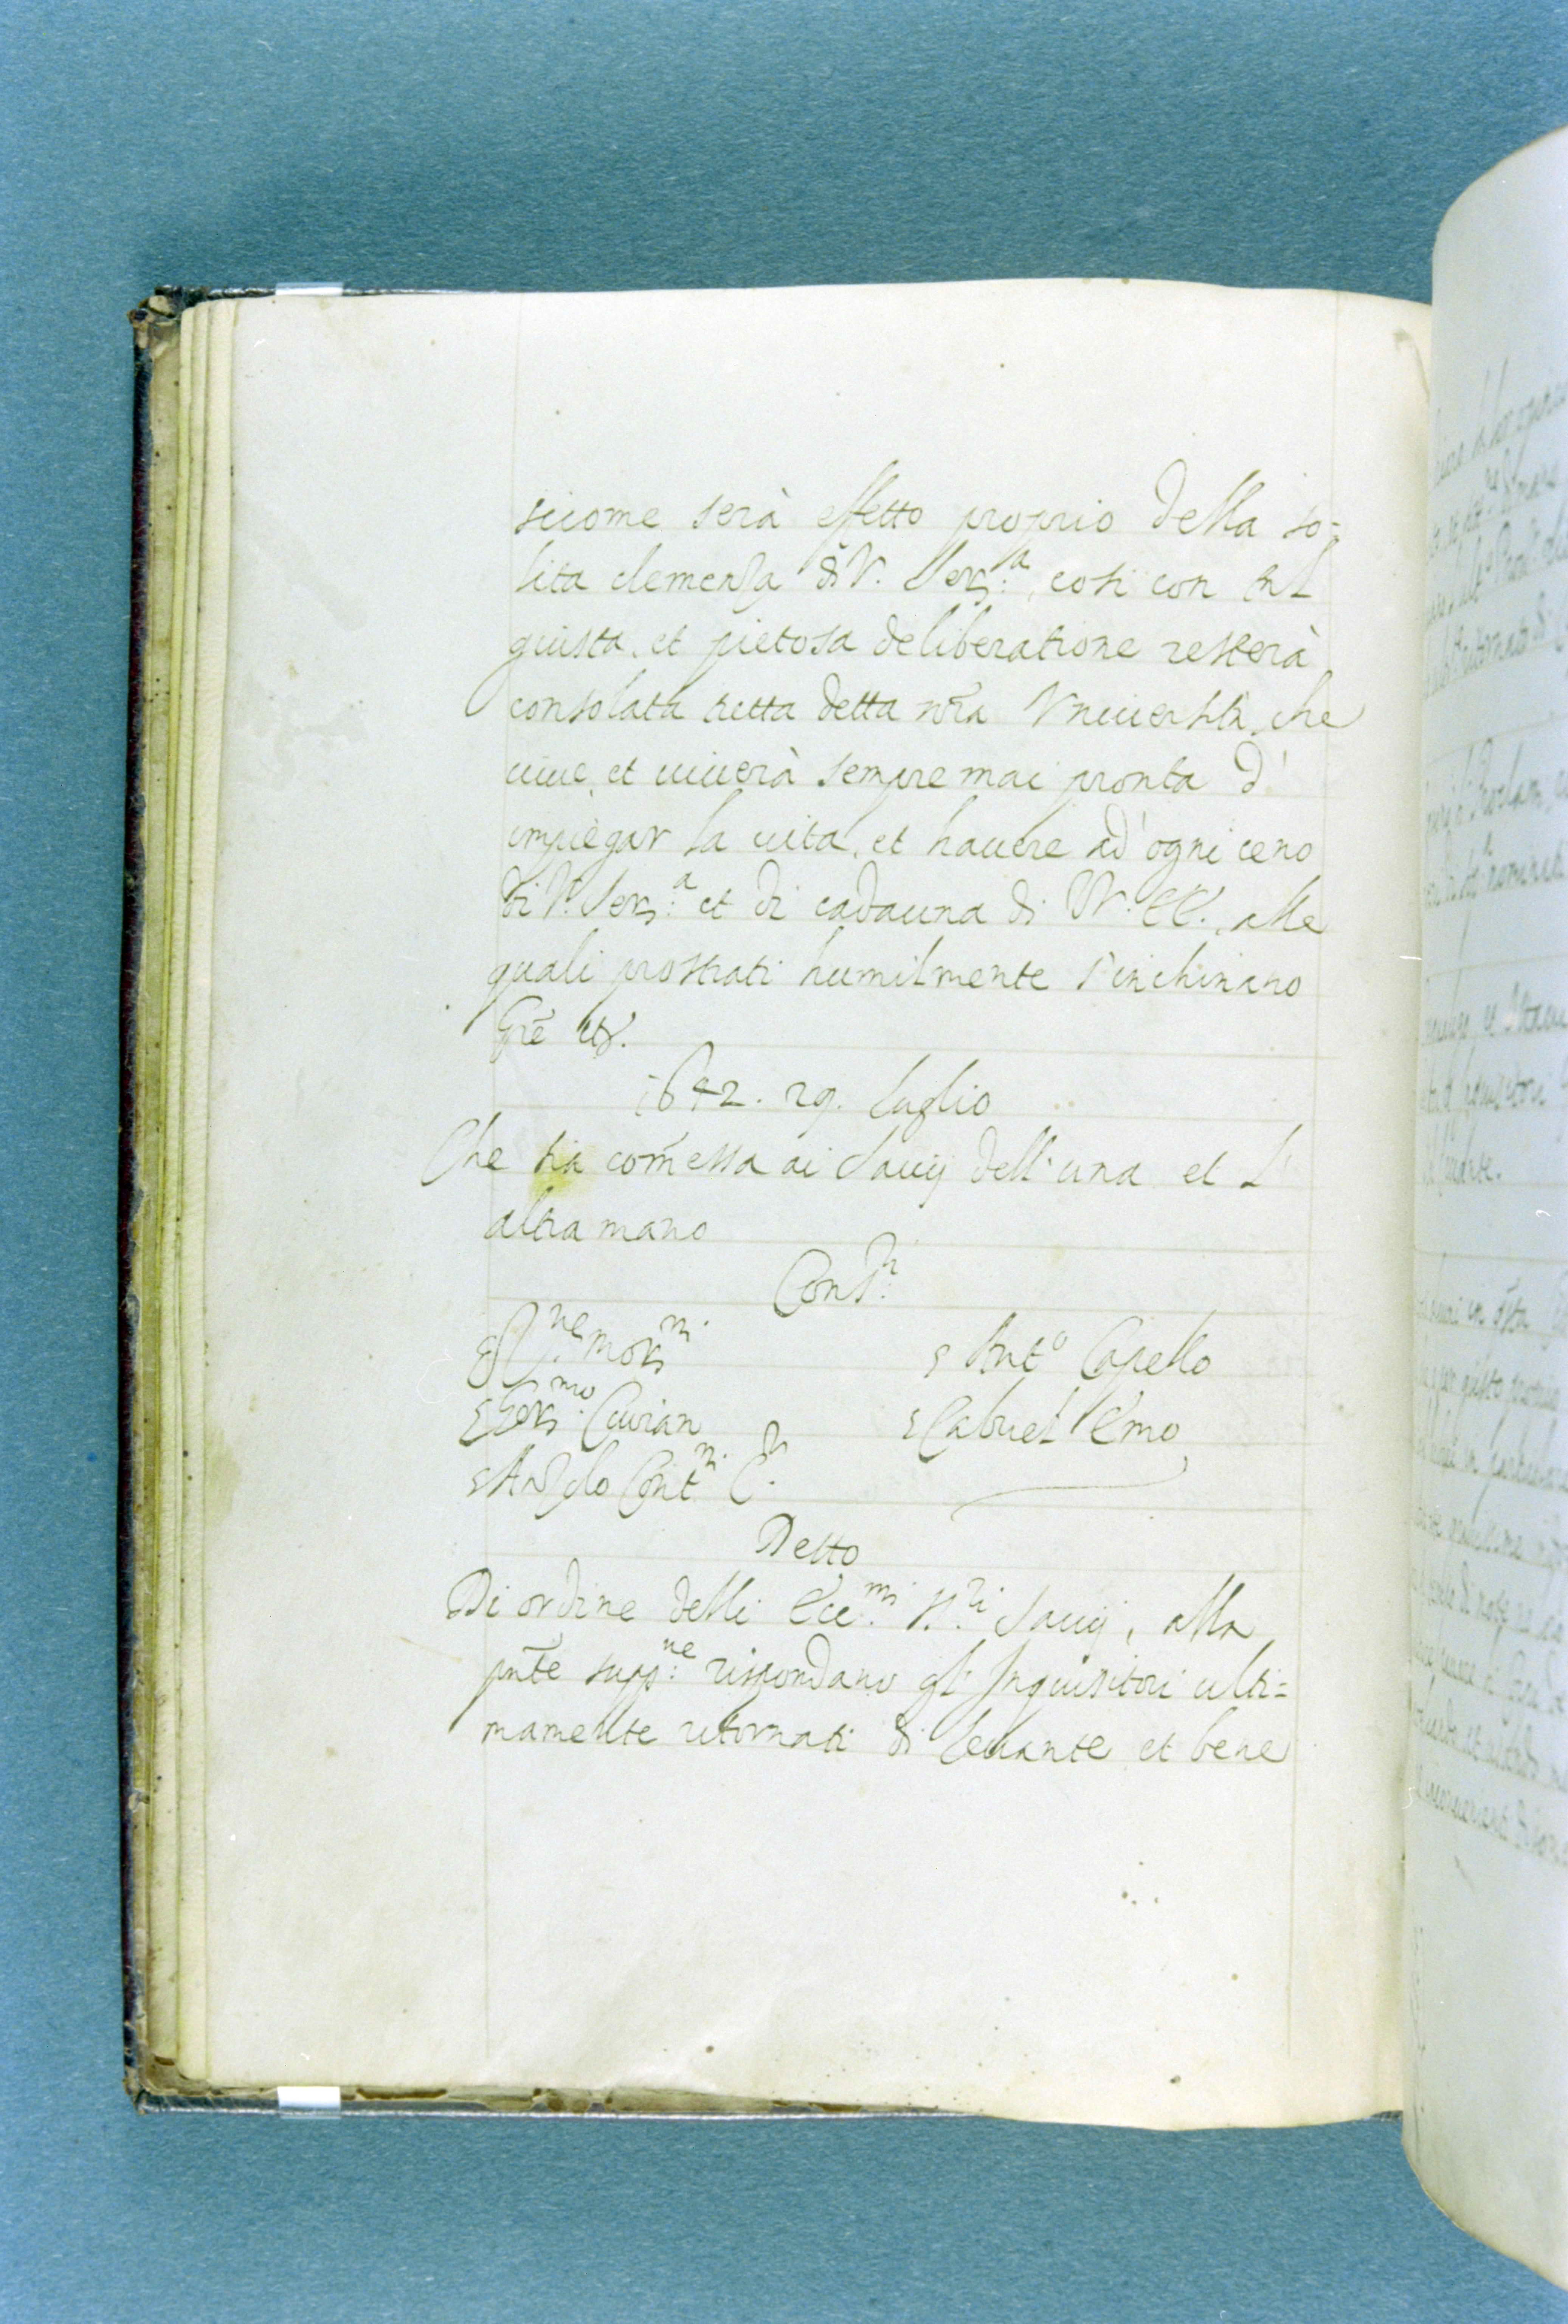 siccome serà effetto proprio della so=
lita clemenza di V. Ser:ᵃ, così con tal
giusta, et pietosa deliberatione resterà
consolata tutta detta nr̃a Vniuersità, che
uiue, et uiuerà sempre mai pronta d'
impiegar la uita, et hauere ad' ogni ceno
di V. Ser:ᵃ et di cadauna di VV. EE., alle
quali prostrati humilmente s'inchinano
Gr̃e etc.
1642. 29. luglio
Che sia com̃essa ai Sauij dell'una et l'
altra mano
Cons:ʳⁱ
Mor:ⁿⁱ
s Ant.º Capello
s Ger:ᵐᵒ Ciuran
s Gabriel Emo
s Anzolo Cont:ⁿⁱ
Detto
Di ordine delli Ecc:ᵐⁱ S:ʳⁱ Sauij, alla
pñte supp:ⁿᵉ rispondano gl'Inquisitori ulti=
mamente ritornati di Leuante, et bene